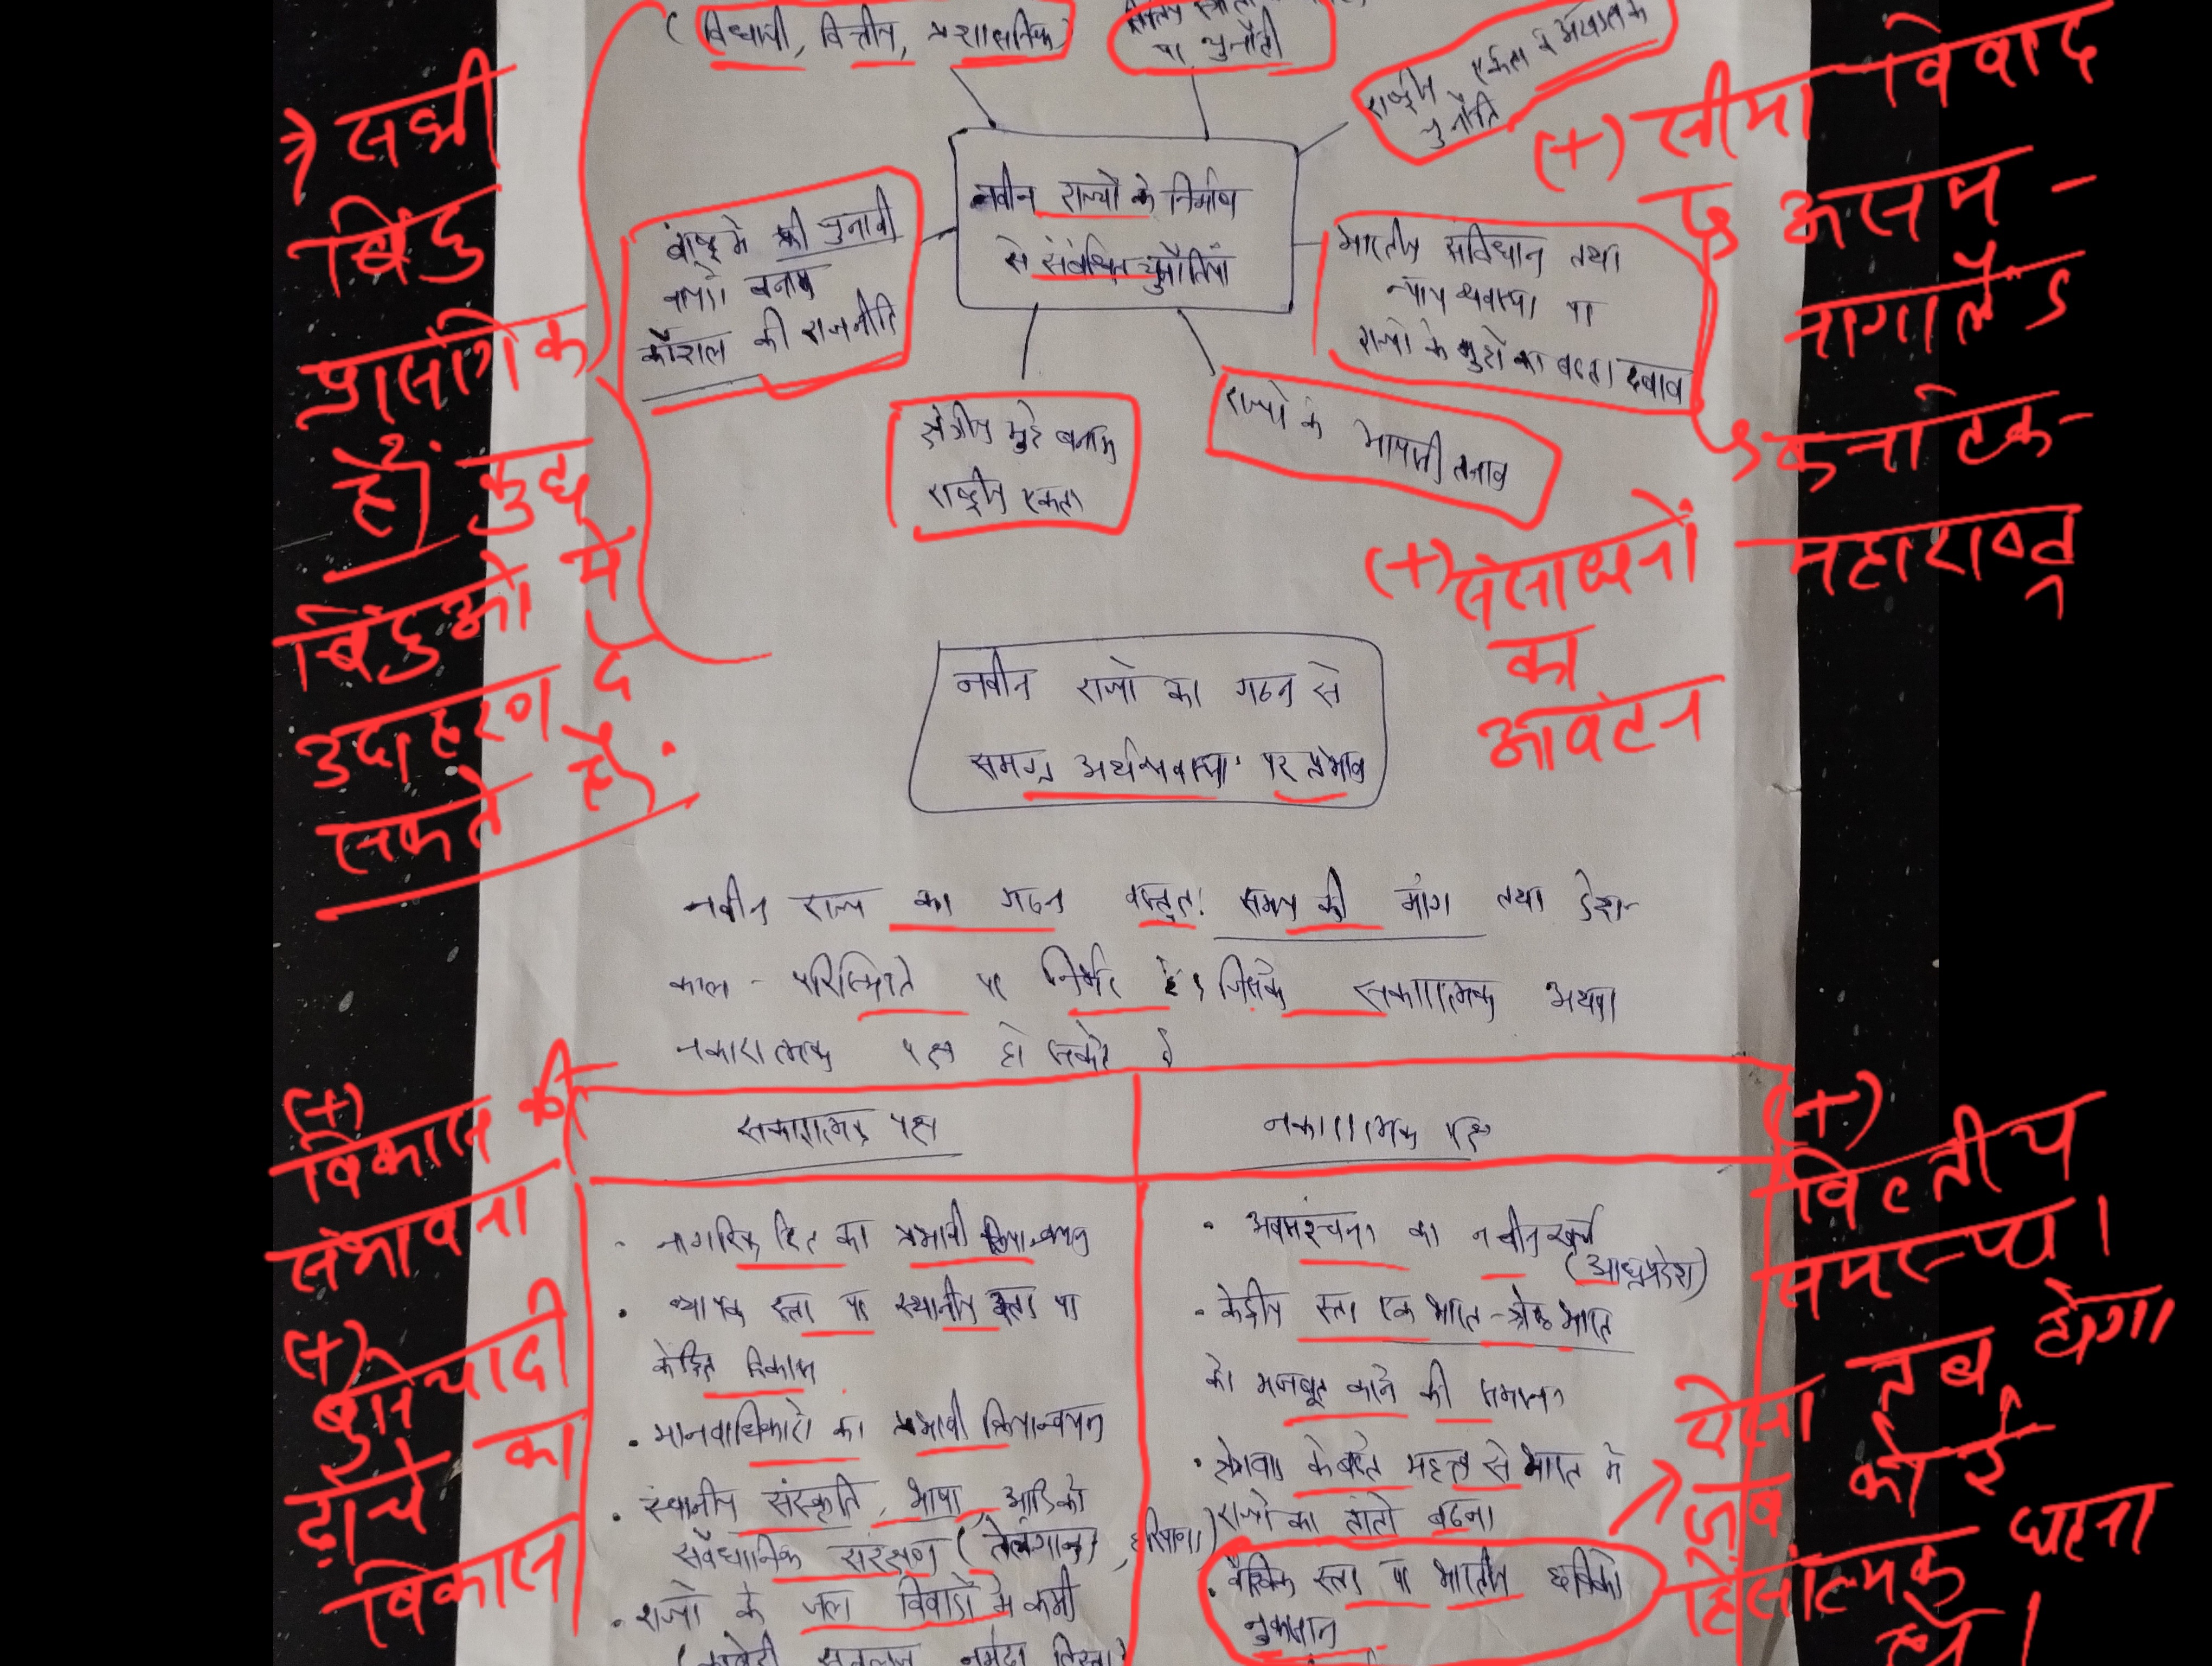 (विधायी, वित्तीय, प्रशासनिक)
पर चुनौती
राष्ट्रीय एकता व अखण्डता
चुनौति
नवीन राज्यों के निर्माण
से संबंधित चुनौतियाँ
की चुनावी
कौशल की राजनीति
भारतीय संविधान तथा
न्याय व्यवस्था पर
राज्यों के मुद्दो का बढता दबाव
क्षेत्रीय मुद्दे बनाम
राष्ट्रीय एकता
राज्यो के आपसी तनाव
ये सभी
बिंदु
प्रासंगिक
हैं। कुछ
बिंदुओ में
उदाहरण दे
सकते हैं।
(+) सीमा विवाद
असम -
नागालैंड
कर्नाटक-
महाराष्ट्र
(+) संसाधनों
का
आवंटन
नवीन राज्यो का गठन से
समग्र अर्थव्यवस्था पर प्रभाव
नवीन राज्य का गठन वस्तुतः समय की मांग तथा देश-
काल - परिस्थिति पर निर्भर है, जिसके सकारात्मक अथवा
नकारात्मक पक्ष हो सकते है
सकारात्मक पक्ष
· नागरिक हित का प्रभावी क्रियान्वयन
· व्यापक स्तर पर स्थानीय स्तर पर
केंद्रित विकास
· मानवाधिकारो का प्रभावी क्रियान्वयन
· स्थानीय संस्कृति, भाषा, आदि को
संवैधानिक संरक्षण (तेलंगाना, हरियाणा)
· राज्यो के जल विवादो मे कमी
(कावेरी, सतलज, नर्मदा, तिस्ता)
नकारात्मक पक्ष
· अवसंरचना का नवीन खर्च
(आंध्रप्रदेश)
· केंद्रीय स्तर एक भारत-श्रेष्ठ भारत
को मजबूत करने की समस्या
· क्षेत्रवाद के बढते महत्व से भारत मे
राज्यो का तांतो बढना
· वैश्विक स्तर पर भारतीय छवि को
नुकसान
(+)
विकास की
संभावना
(+)
बुनियादी
ढ़ांचे का
विकास
(+)
वित्तीय
समस्या।
ऐसा तब होगा
जब कोई
हिंसात्मक घटना
हो।